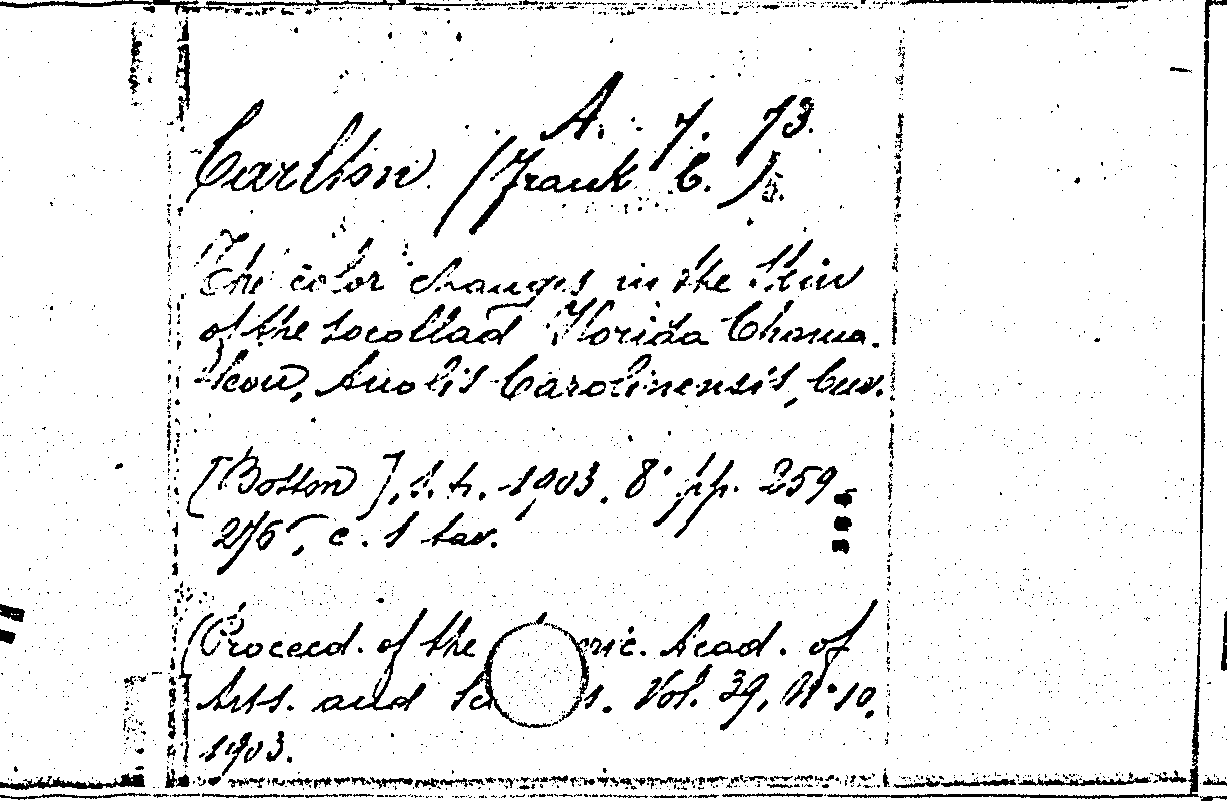 A. 7. 73.
Carlton (Frank C.) 5.
The color changes in the Skin
of the socollad Florida Chama-
leon, Anolis Carolinensis, Cuv.
[Boston], s. t. 1903. 8° pp. 259-
275, c. 1 tav.
(Proceed. of the eric. Acad. of
Arts. and Sc s. Vol. 39, N° 10.
1903.